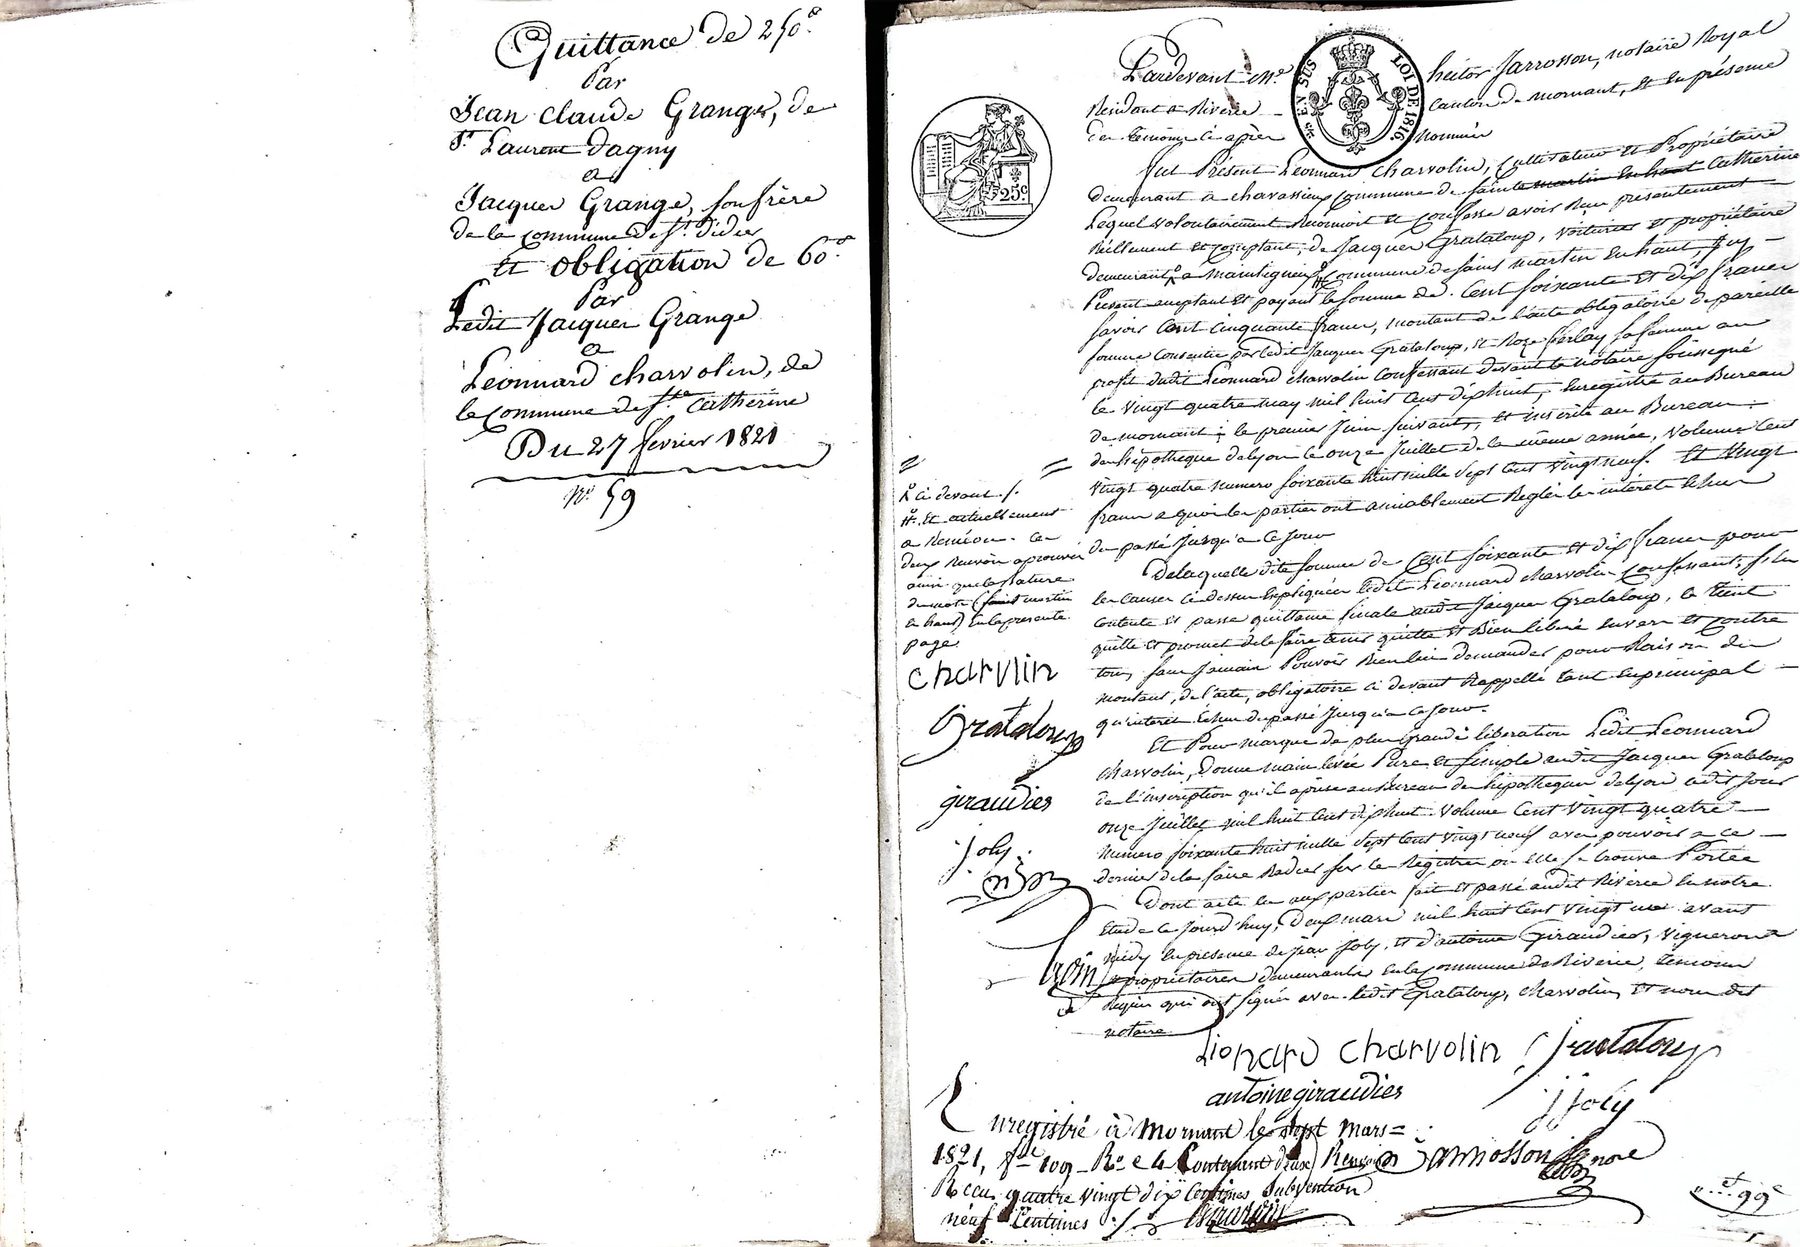 Quittance de 250.
Par
Jean Claude Grange, de
St. Laurent dagny
a
Jacques Grange, son frère
de la Commune de St. Didier
Et obligation de 60.
Par
Ledit Jacques Grange
a
Léonnard charvolin, de
la Commune de Ste. Catherine
Du 27 février 1821
N°. 59
25c.
EN SUS
LOI DE 1816
Pardevant Me. hector Jarrosson, notaire Royal
Résidant a Riverie canton de mornant, et en présence
des témoins ci après nommés
fut Présent Léonnard Charvolin, Cultivateur et Propriétaire
demeurant a chavassieu Commune de sainte martin en haut Catherine
Lequel volontairement Reconnoit et Confesse avoir Reçu présentement
Réellement et comptant, de Jacques Grataloup, voiturier et propriétaire
demeurant a maintigneux Commune de saint martin en haut, Icy
Présent acceptant et payant la somme de Cent soixante et dix francs
savoir Cent cinquante francs, montant de l'acte obligatoire de pareille
somme Consentie par ledit Jacques Grataloup, et Roze ferlay sa femme au
profit dudit Léonnard charvolin Confessant devant le notaire soussigné
le vingt quatre may mil huit Cent dixhuit, Enregistré au Bureau
de mornant le premier Juin suivant, et inscrite au Bureau
des hipothèques de lyon le onze Juillet de la même année, volume Cent
vingt quatre numero soixante huit mille sept Cent vingt neuf. Et Vingt
francs a quoi les parties ont amiablement Réglés les intérêts Echus
du passé Jusqu'a ce Jour
Delaquelle dite somme de Cent soixante et dix francs pour
les causes ci dessus Expliquées ledit Léonnard charvolin Confessant, s'en
contente et passe quittance finale audit Jacques Grataloup, le tient
quitte et promet de le faire tenir quitte et Bien libéré envers et Contre
tous, sans Jamais Pouvoir Rien lui demander pour Raison du
montant, de l'acte, obligatoire ci devant Rappellé tant en principal
qu'intérêt Echus du passé Jusqu'a ce Jour.
Et Pour marque de plus grande libération Ledit Léonnard
charvolin, Donne main levée Pure et simple audit Jacques Grataloup
de l'inscription qu'il a prise au Bureau des hipothèques de lyon ledit Jour
onze Juillet mil huit Cent dixhuit volume Cent vingt quatre
numero soixante huit mille sept Cent vingt neuf avec pouvoir a ce
dernier de la faire Radier sur les Registres ou elle se trouve Portée
Dont acte lu aux parties fait et passé audit Riverie En notre
Etude ce Jourd'huy, Deux mars mil huit Cent vingt un avant
midy en présence de Jean Joly, et d'antoine Giraudier, vignerons
et propriétaires demeurants en la Commune de Riverie, témoins
Requis qui ont signés avec ledit Grataloup, charvolin, et nous dit
notaire
ci devant
et actuellement
a Rontéon. Ces
deux Renvois aprouvés
ainsi que la Rature
de mots (saint martin
en haut) En la présente
page.
charvlin
Grataloup
giraudier
joly.
Lionard charvolin Grataloup
antoine giraudier
j joly
Jarrosson
nore
Enregistré à Mornant le sept mars
1821, fo. 109 Ro. c 4 Contenant deux Renvois
Recu quatre vingt dix Centimes Subvention
neuf Centimes
99c